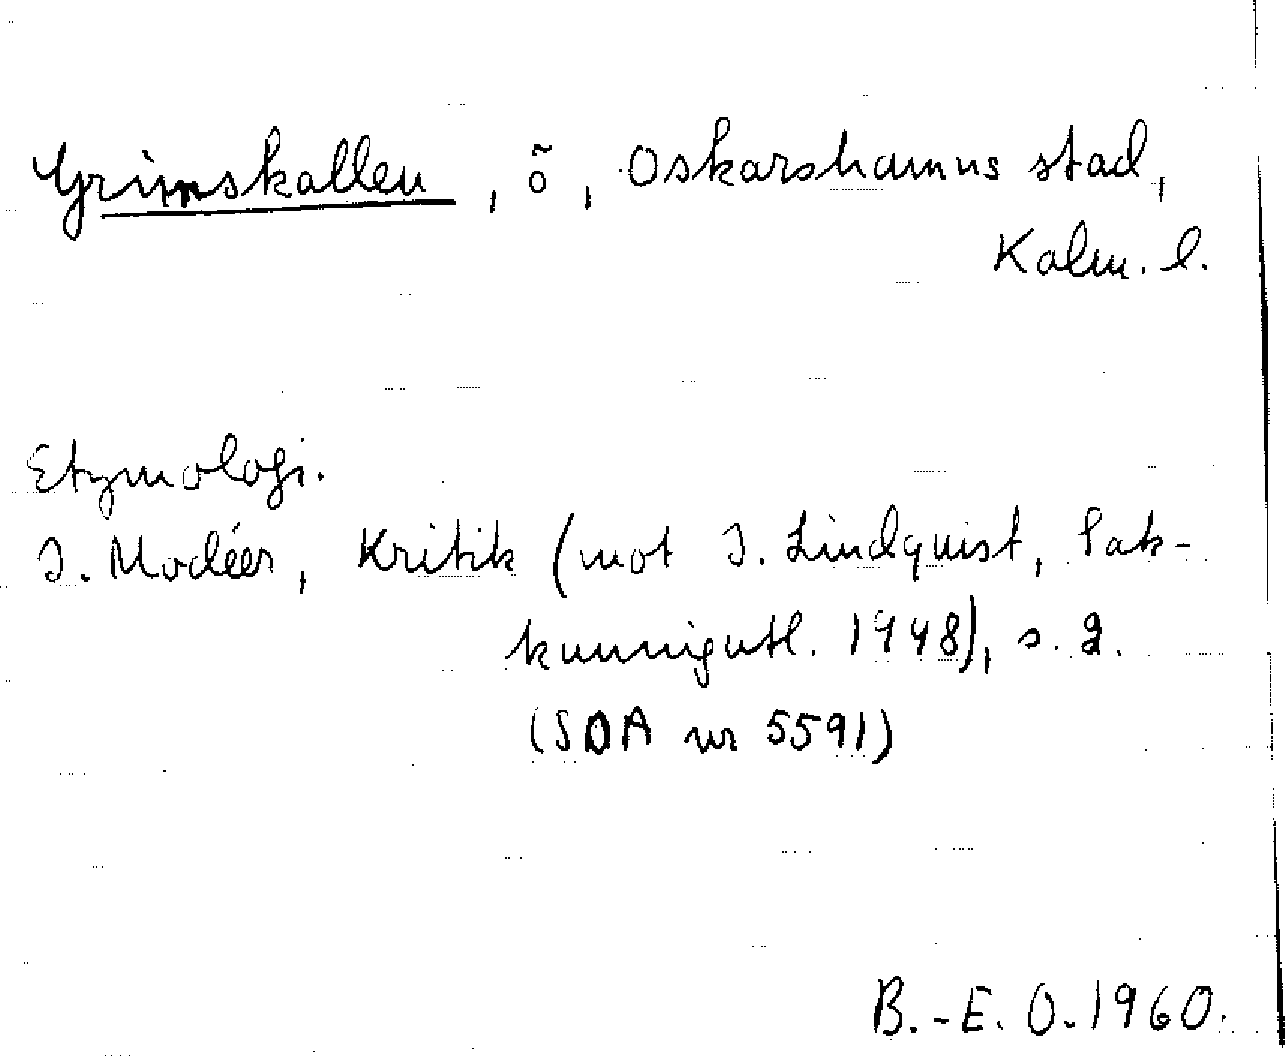 Grimskallen, ö, Oskarshamns stad,
Kalm. l.
Etymologi.
I. Modéer, Kritik (mot I. Lindquist, Sak-
kunnigutl. 1948), s. 2.
(SOA nr 5591)
B.-E. O. 1960.